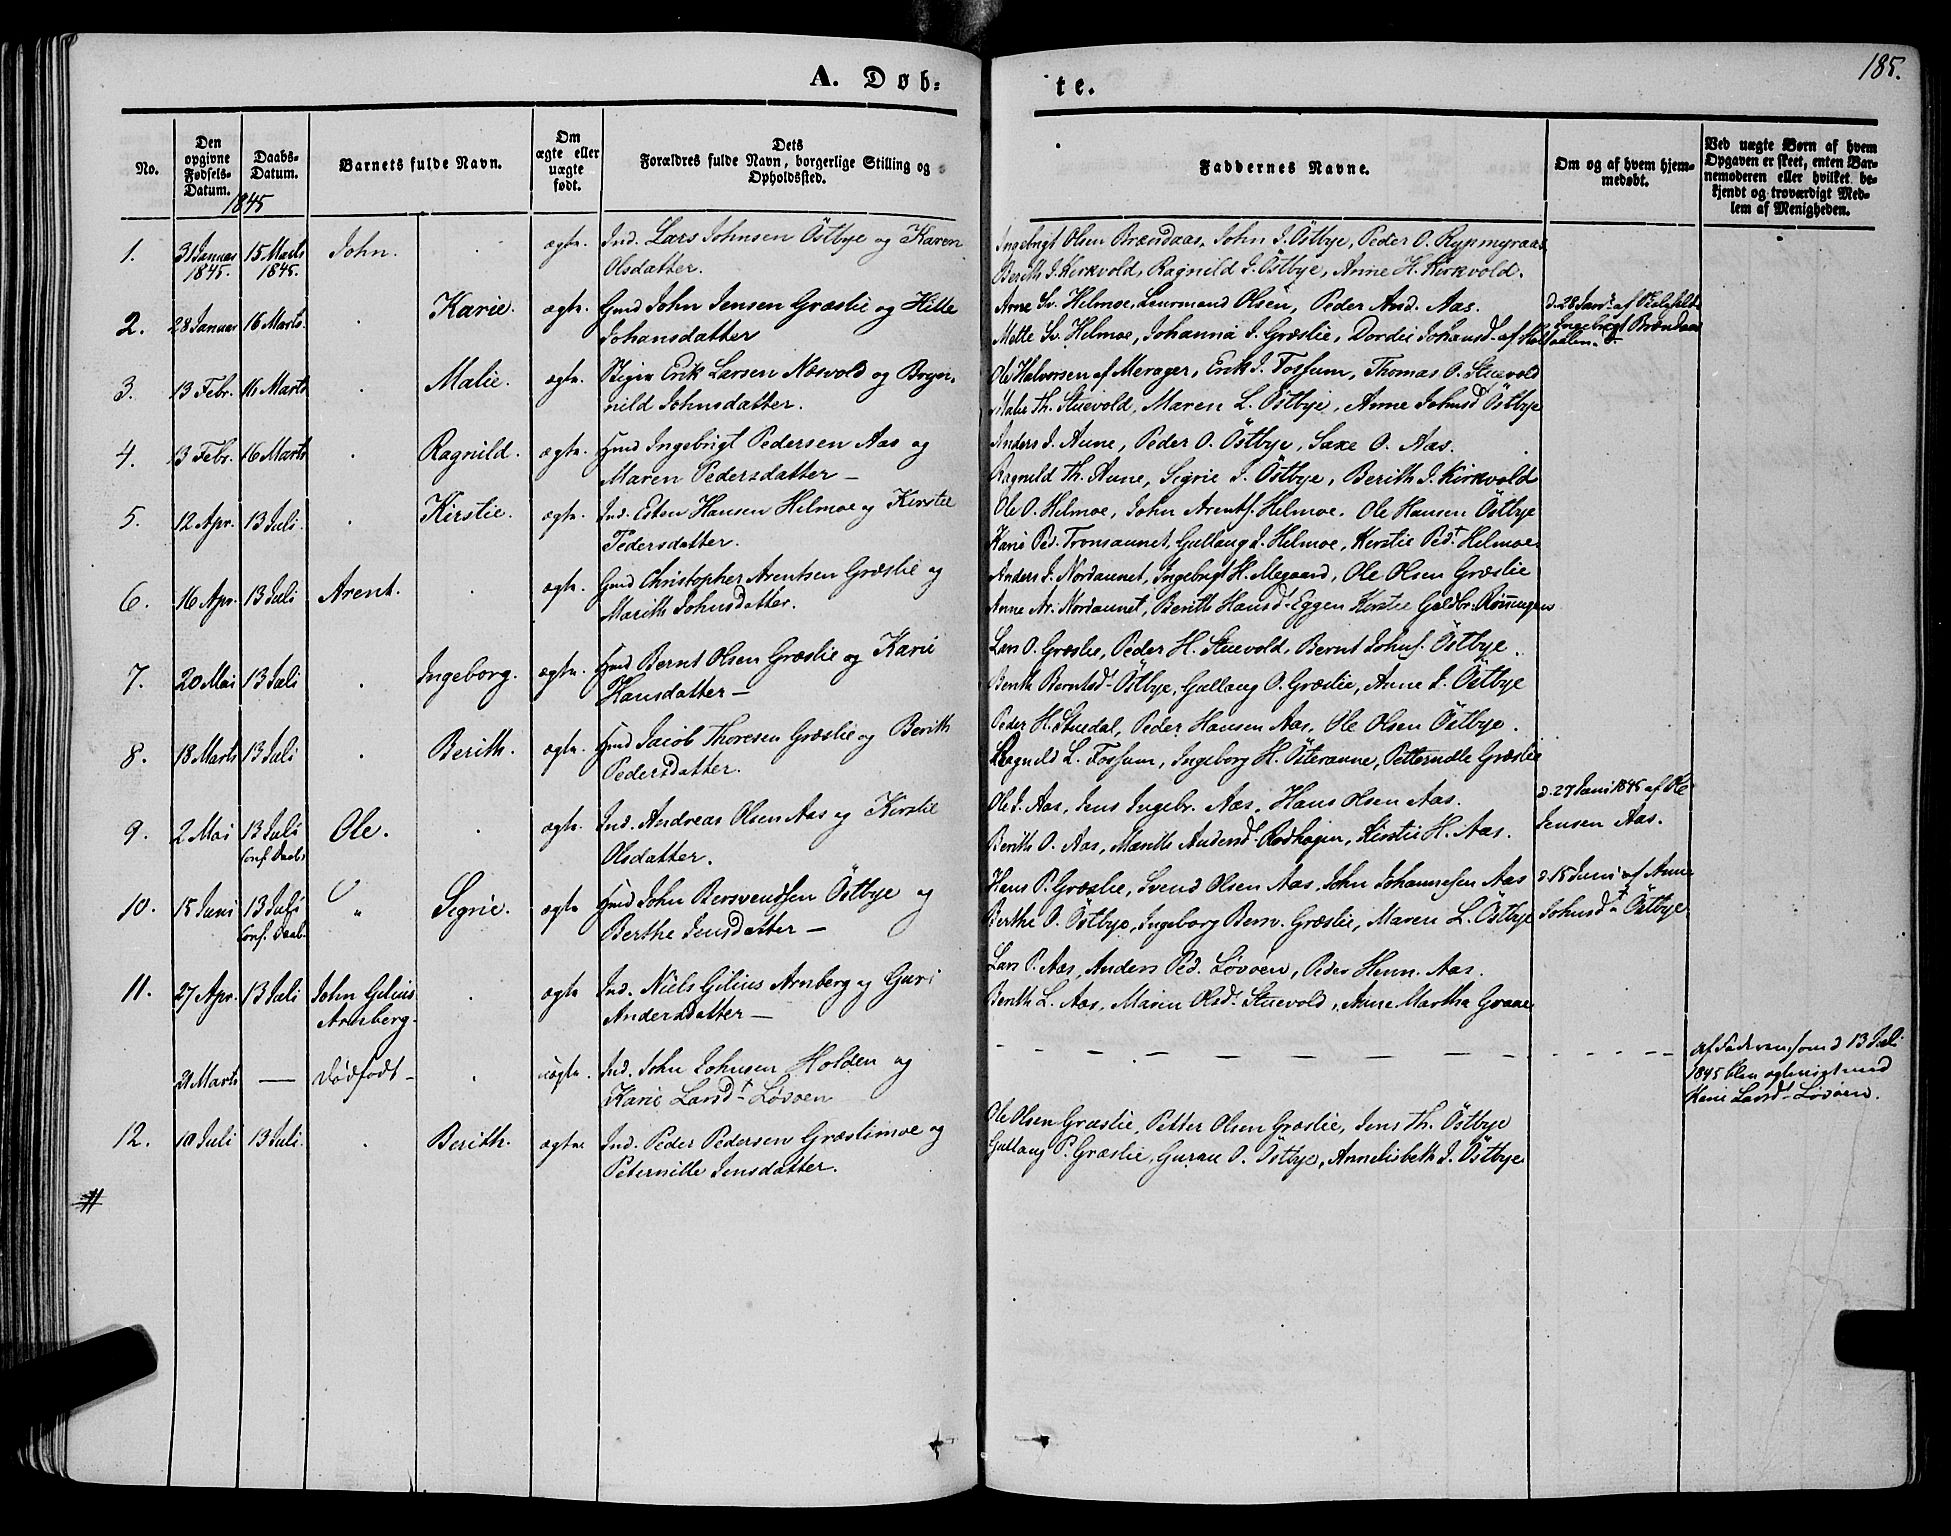 185.
A. Døb=
te.
No.
Den opgivne Fødsels-Datum.
Daabs-Datum.
Barnets fulde Navn.
Om ægte eller uægte født.
Dets Forældres fulde Navn, borgerlige Stilling og Opholdssted.
Faddernes Navne.
Om og af hvem hjemmedøbt.
Ved uægte Børn af hvem Opgaven er skeet, enten Barnemoderen eller hvilket bekjendt og troværdigt Medlem af Menigheden.
1845
1. 31 Januar 1845. 15 Marts 1845. John. ægte. Ind. Lars Johnsen Östbye og Karen
Olsdatter.
Ingebrigt Olsen Brændaas, John J. Östbye, Peder O. Rypmyraas
Berith J. Kirkvold, Ragnild J. Östbye, Anne H. Kirkvold.
2. 28 Januar 16 Marts. Karie. ægte. Gmd John Jensen Græslie og Kitte
Johansdatter
Arne Sv. Helmoe, Olsen, Peder And. Aas.
Mette Sv. Helmoe, Johanna J. Græslie, Dordie Johansd. af Holtaalen.
d. 28 Jan. af
Ingebrigt Brændaas
3. 13 Febr. 16 Marts Malie. ægte. Erik Larsen Næsvold og
Johnsdatter.
Ole Halvorsen af Merager, Erik J. Fossum, Thomas O. Stuevold
Malie Th. Stuevold, Maren L. Östbye, Anne Johnsd Östbye
4. 13 Febr. 16 Marts Ragnild. ægte. Hmd Ingebrigt Pedersen Aas og
Maren Pedersdatter –
Anders J. Aune, Peder O. Östbye, Saxe O. Aas.
Ragnild Th. Aune, Sigrie J. Östbye, Berith J. Kirkvold
5. 12 Apr. 13 Juli. Kirstie. ægte. Ind. Esten Hansen Helmoe og Kirstie
Pedersdatter.
Ole O. Helmoe, John Arents. Helmoe. Ole Hansen Östbye
Karie Ped. Tronsaunet, Gullaug J. Helmoe, Kerstie Ped. Helmoe.
6. 16 Apr. 13 Juli Arent. ægte. Gmd Christopher Arentsen Græslie og
Marith Johnsdatter.
Anders J. Nordaunet, Ingebrigt H. Megaard, Ole Olsen Græslie
Anne Ar. Nordaunet, Berith Hansd. Eggen Kerstie Guldbr. Rönningen
7. 20 Mai 13 Juli Ingeborg. ægte. Hmd Bernt Olsen Græslie og Karie
Hansdatter –
Lars O. Græslie, Peder H. Stuevold, Bernt Johns. Östbye.
Berith Berntsd. Östbye, Gullaug O. Græslie, Anne J. Östbye
8. 18 Marts 13 Juli Berith. ægte. Hmd Jacob Thoresen Græslie og Berith
Pedersdatter.
Peder H. Stuedal, Peder Hansen Aas, Ole Olsen Östbye.
Ragnild L. Fossum, Ingeborg H. Österaune, Petternelle Græslie
9. 2 Mai 13 Juli Conf. Daab. Ole. ægte. Ind. Andreas Olsen Aas og Kirstie
Olsdatter.
Ole J. Aas, Jens Ingebr. Aas, Hans Olsen Aas.
Berith O. Aas, Marith Andersd. Rodhagen, Kirstie H. Aas.
d. 27 Juni 1845 af Ole
Jensen Aas.
10. 15 Juni 13 Juli Conf. Daab. " Sigrie. ægte Hmd John Bersvendsen Östbye og
Berthe Jensdatter –
Hans P. Græslie, Svend Olsen Aas, John Johannesen Aas
Berthe O. Östbye, Ingeborg Bersv. Græslie, Maren L. Östbye
d. 15 Juni af Anne
Johnsd. Östbye
11. 27 Apr. 13 Juli John Gilius Arnsberg. ægte Ind. Niels Gilius Arnsberg og Guri
Andersdatter –
Lars P. Aas, Anders Ped. Løvoen, Peder Henn. Aas.
Berith L. Aas, Maren Olsd. Stuevold, Anne Martha Graae
21 Marts — Dödfödt – uægte. Ind. John Johnsen Holden og
Karie Larsd. Løvoen
af Faderen, som d 13 Juli
1845 blev med
Karie Larsd. Løvoen.
12. 10 Juli 13 Juli. Berith. ægte. Ind. Peder Pedersen Græslimoe og
Peternille Jensdatter.
Ole Olsen Græslie, Petter Olsen Græslie, Jens Th. Östbye
Gullaug P. Græslie, Guruu O. Östbye, Annelisbeth J. Östbye